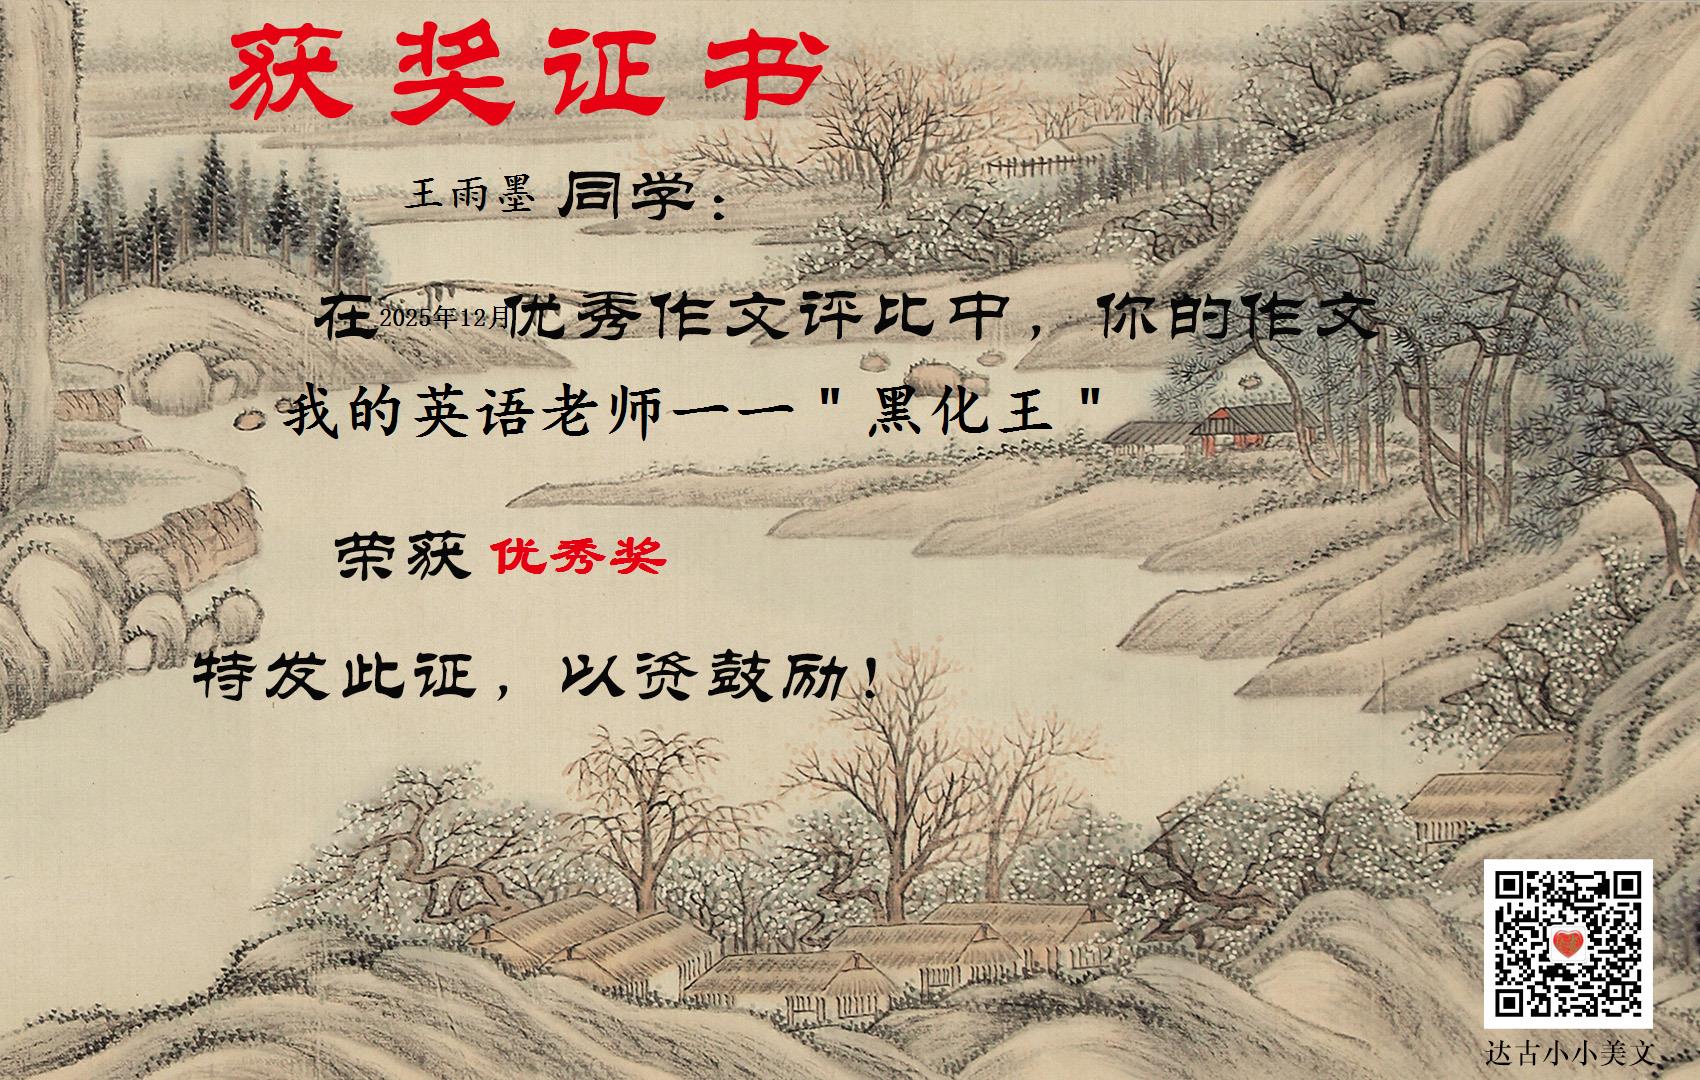 获奖证书
王雨墨 同学：
在2025年12月优秀作文评比中，你的作文
我的英语老师一一＂黑化王＂
荣获 优秀奖
特发此证，以资鼓励！
达古小小美文